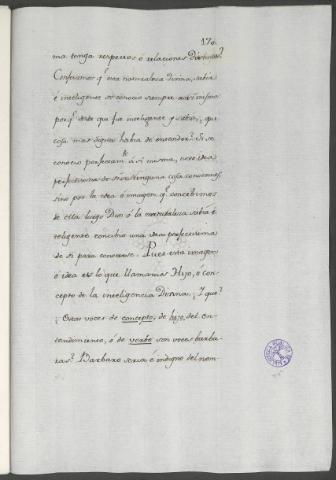 170.
ma tenga respectos ó relaciones distintas?
Confesamos q.e esta naturaleza divina, sabia
é inteligente se conoció siempre a si misma
porq.e desde que fue inteligente y sabia, que
cosa mas digna habia de entender? Si se
conoció perfectam.te á si misma, tuvo idea
perfectissima de si: ninguna cosa conocemos,
sino por la idea ó imagen q.e concebimos
de ella: luego Dios ó la naturaleza sabia é
inteligente concibió una idea perfectissima
de si para conocerse. Pues esta imagen
ó idea es lo que llamamos Hijo, ó con-
cepto de la inteligencia Divina. Y que?
Estas voces de concepto, de hijo, del en-
tendimiento, ó de verbo son voces barba-
ras? Barbaro seria é indigno del nom-